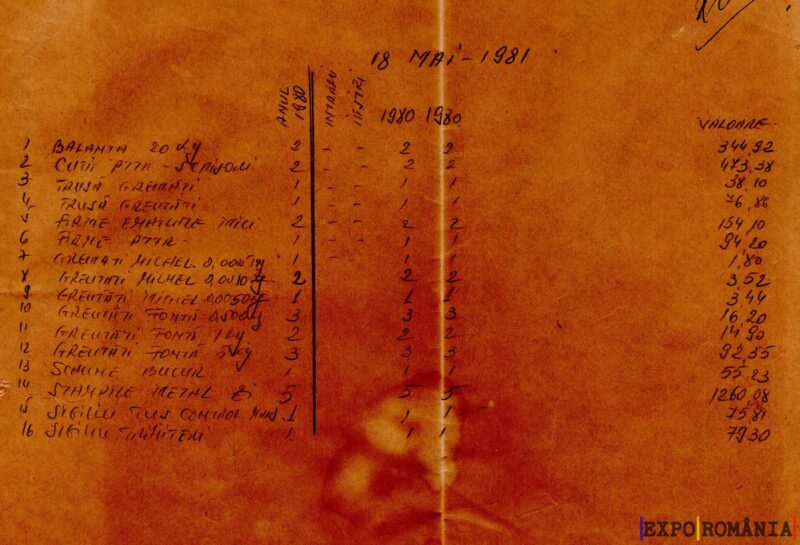 18 MAI - 1981
ANUL 1980 INTRARI IESIRI 1980 1980 VALOARE
1 BALANTA 20 Kg 2 - - 2 2 344,92
2 CUTII PTTR - SCRISORI 2 - - 2 2 473,38
3 TRUSĂ GREUTĂTI 1 - - 1 1 38,10
4 TRUSĂ GREUTĂTI 1 - - 1 1 76,86
5 FIRME EMAILATE MICI 2 - - 2 2 154,10
6 FIRME PTTR 1 - - 1 1 94,20
7 GREUTATI MICHEL 1 - - 1 1 1,80
8 GREUTĂTI MICHEL 0,0010 2 2 2 3,52
9 GREUTĂTI MICHEL 0,0050 1 1 1 3,44
10 GREUTĂTI FONTĂ 0,500 Kg 3 3 3 16,20
11 GREUTĂTI FONTĂ 1 Kg 2 2 2 14,90
12 GREUTĂTI FONTĂ 5 Kg 3 3 3 92,55
13 BUCUR 1 1 1 55,23
14 STAMPILE METAL ZI 5 5 5 1260,08
15 SIGILIU TUS CONTROL 1 1 1 75,81
16 SIGILIU 1 1 1 79,30
EXPO ROMÂNIA